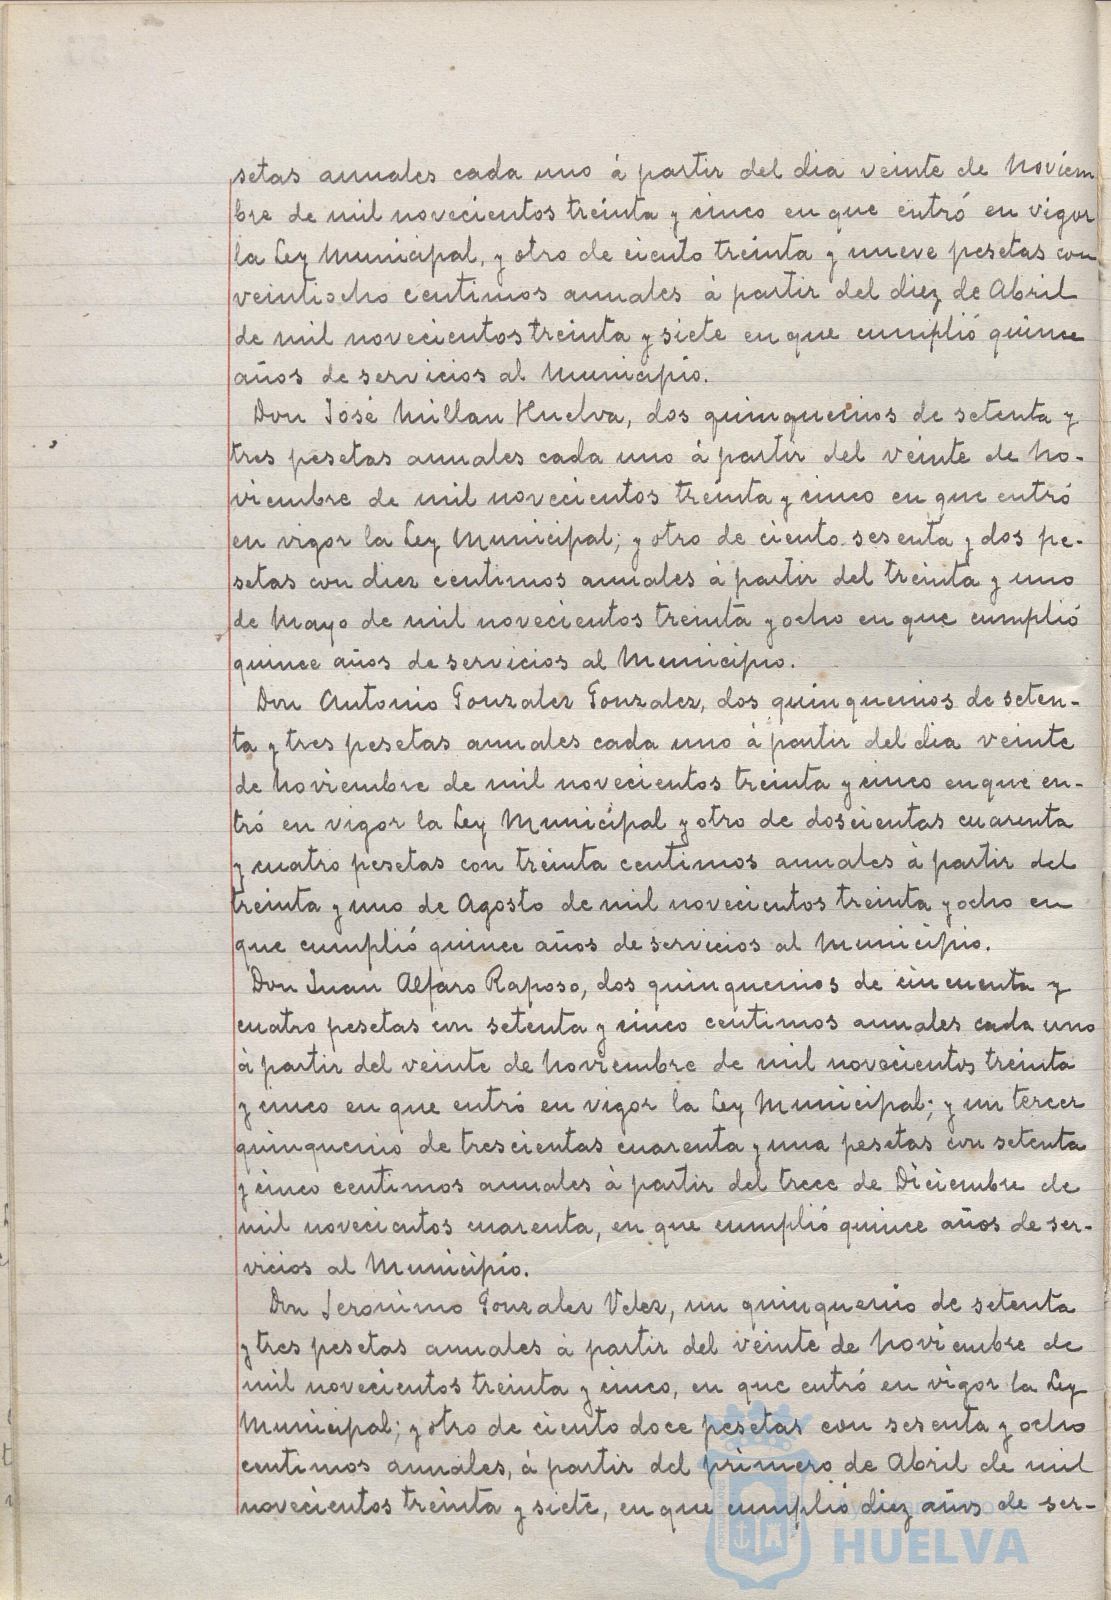 setas anuales cada uno á partir del dia veinte de Noviem
bre de mil novecientos treinta y cinco en que entró en vigor
la Ley Municipal, y otro de ciento treinta y nueve pesetas con
veintiocho centimos anuales á partir del diez de Abril
de mil novecientos treinta y siete en que cumplió quince
años de servicios al Municipio.
Don José Millan Huelva, dos quinquenios de setenta y
tres pesetas anuales cada uno á partir del veinte de No-
viembre de mil novecientos treinta y cinco en que entró
en vigor la Ley Municipal; y otro de ciento sesenta y dos pe-
setas con diez centimos anuales á partir del treinta y uno
de Mayo de mil novecientos treinta y ocho en que cumplió
quince años de servicios al Municipio.
Don Antonio Gonzalez Gonzalez, dos quinquenios de seten-
ta y tres pesetas anuales cada uno á partir del dia veinte
de Noviembre de mil novecientos treinta y cinco en que en-
tró en vigor la Ley Municipal y otro de doscientas cuarenta
y cuatro pesetas con treinta centimos anuales á partir del
treinta y uno de Agosto de mil novecientos treinta y ocho en
que cumplió quince años de servicios al Municipio.
Don Juan Alfaro Raposo, dos quinquenios de cincuenta y
cuatro pesetas con setenta y cinco centimos anuales cada uno
á partir del veinte de Noviembre de mil novecientos treinta
y cinco en que entró en vigor la Ley Municipal; y un tercer
quinquenio de trescientas cuarenta y una pesetas con setenta
y cinco centimos anuales á partir del trece de Diciembre de
mil novecientos cuarenta, en que cumplió quince años de ser-
vicios al Municipio.
Don Jeronimo Gonzalez Velez, un quinquenio de setenta
y tres pesetas anuales á partir del veinte de Noviembre de
mil novecientos treinta y cinco, en que entró en vigor la Ley
Municipal; y otro de ciento doce pesetas con sesenta y ocho
centimos anuales, á partir del primero de Abril de mil
novecientos treinta y siete, en que cumplió diez años de ser-
Ayuntamiento de
HUELVA